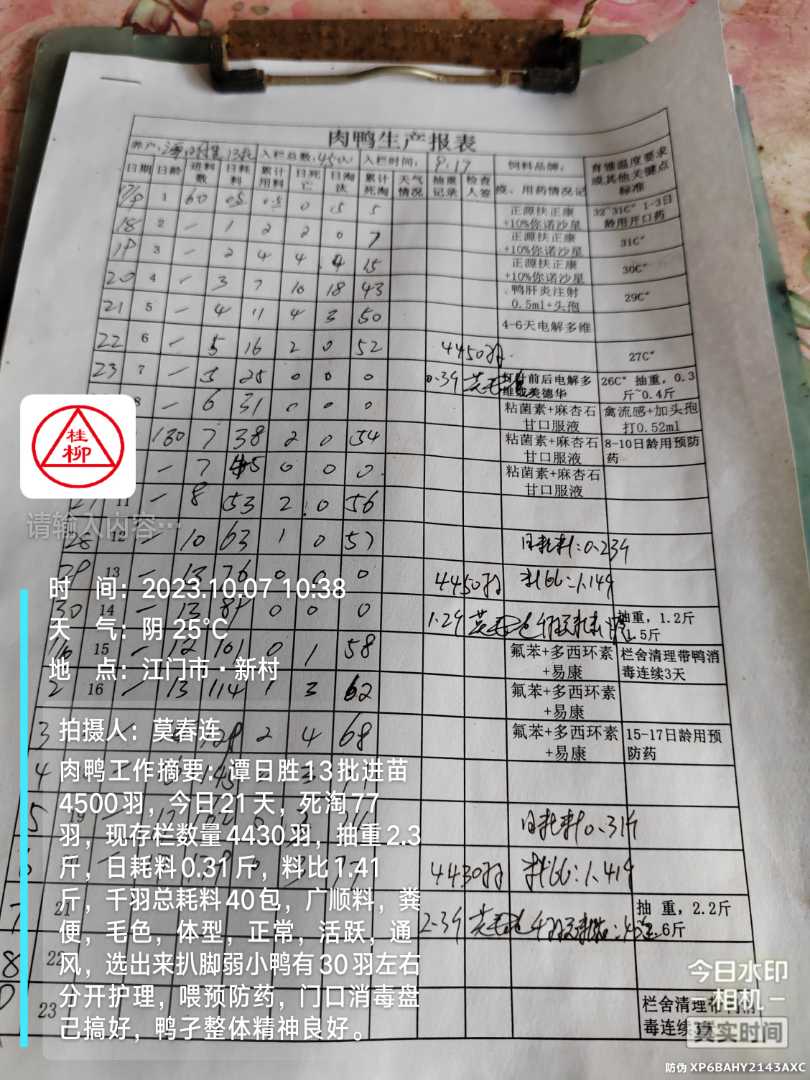 肉鸭生产报表
养户: 入栏总数: 入栏时间: 9.17 饲料品牌: 育雏温度要求或其他关键点标准
日期 日龄 进料数 日耗料 累计用料 日死亡 日淘汰 累计死淘 天气情况 抽重记录 检查人签 疫、用药情况记
17/9 1 60 0.5 0.5 0 5 5 正源扶正康+10%你诺沙星 32~31C° 1-3日龄用开口药
18 2 - 1 2 2 0 7 正源扶正康+10%你诺沙星 31C°
19 3 - 2 4 4 4 15 正源扶正康+10%你诺沙星 30C°
20 4 - 3 7 10 18 43 鸭肝炎注射0.5ml+头孢 29C°
21 5 - 4 11 4 3 50 4-6天电解多维
22 6 - 5 16 2 0 52 4450羽 27C°
23 7 - 5 25 0 0 0 0.3斤 前后电解多 26C° 抽重，0.3斤~0.4斤
8 - 6 31 0 0 0 粘菌素+麻杏石甘口服液 禽流感+加头孢打0.52ml
130 7 38 2 0 54 粘菌素+麻杏石甘口服液 8-10日龄用预防药
- 7 45 0 0 0 粘菌素+麻杏石甘口服液
11 - 8 53 2 0 56
28 12 - 10 63 1 0 57 日耗料:0.23斤
29 13 - 13 76 0 0 0 4450羽 料比:1.14斤
30 14 - 13 89 0 0 0 1.2斤 抽重，1.2斤 1.5斤
15 - 12 101 0 1 58 氟苯+多西环素+易康 栏舍清理带鸭消毒连续3天
2 16 - 13 114 1 3 62 氟苯+多西环素+易康
3 128 2 4 68 氟苯+多西环素+易康 15-17日龄用预防药
4
5 19 日耗料0.31斤
6 4430羽 料比:1.41斤
7 21 2.3斤 抽 重，2.2斤 .6斤
8 22
23 栏舍清理带 消毒连续3
桂柳
请输入内容…
时 间：2023.10.07 10:38
天 气：阴 25℃
地 点：江门市·新村
拍摄人：莫春连
肉鸭工作摘要：谭日胜13批进苗
4500羽，今日21天，死淘77
羽，现存栏数量4430羽，抽重2.3
斤，白耗料0.31斤，料比1.41
斤，千羽总耗料40包，广顺料，粪
便，毛色，体型，正常，活跃，通
风，选出来扒脚弱小鸭有30羽左右
分开护理，喂预防药，门口消毒盘
己搞好，鸭子整体精神良好。
今日水印
相机
真实时间
防伪 XP6BAHY2143AXC